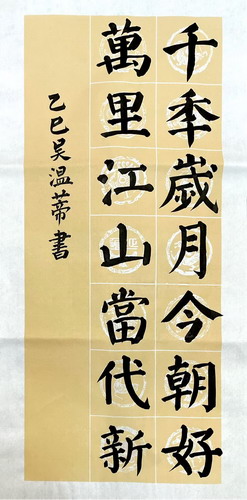 千季歲月今朝好
萬里江山當代新
乙巳吴温蒂書